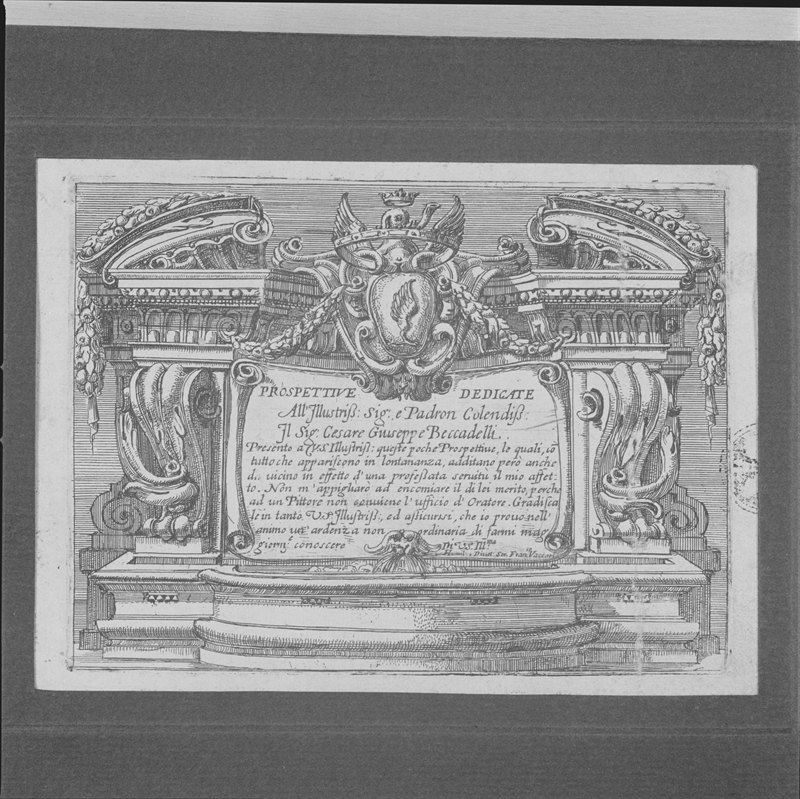 PROSPETTIVE DEDICATE
All'Jllustriß: Sig.r e Padron Colendiß:
Jl Sig.r Cesare Giuseppe Beccadelli.
Presento a V.S. Illustriß: queste poche Prospettive, le quali, cõ
tutto che appariscono in lontananza, additano però anche
da vicino in effetto d'una professata seruitù il mio affet:
to. Non m'appigliarò ad encomiare il di lei merito, perche
ad un Pittore non conuiene l'ufficio d'Oratore. Gradisca
le in tanto V.S. Jllustriß:, ed assicuresi, che io prouo nell'
animo un' ardenza non ordinaria di farmi mag
giorm.te conoscere Di V.S. Ill.ma
Humil: Diuot. Ser. Fran.co